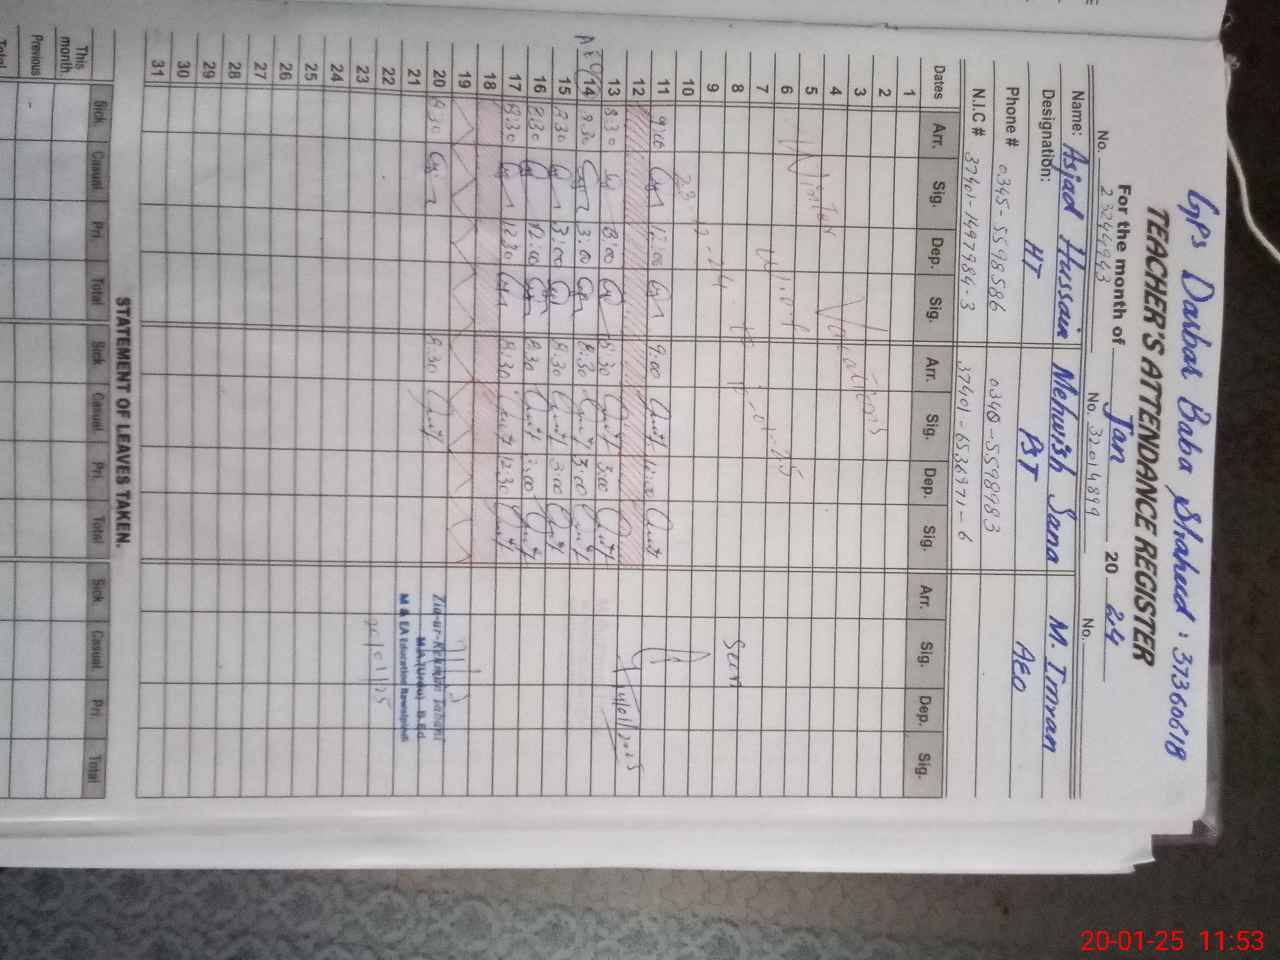 GPS Darbar Baba Shaheed : 37360618
TEACHER'S ATTENDANCE REGISTER
For the month of Jan 20 24
No. 23244943 No. 32014899 No.
Name: Asjad Hussain Mehwish Sana M. Imran
Designation: HT PST AEO
Phone # 0345-5598586 0340-5598983
N.I.C # 37401-1497984-3 37401-6536971-6
Dates Arr. Sig. Dep. Sig. Arr. Sig. Dep. Sig. Arr. Sig. Dep. Sig.
1
2
3
4
5
6
7
8
9
10
Winter Vacations
w.e.f
23-12-24 to
Seen
11 9:00 12:00 9:00
12
13 8:30 3:00 8:30 3:00
14 8:30 3:00 8:30 3:00
15 8:30 3:00 8:30 3:00
16 8:30 8:30 3:00
17 8:30 12:30 8:30 12:30
18
19
20 8:30 8:30
21
22
23
24
25
26
27
28
29
30
31
Zia-ur-Rehman
M.A.(Urdu) B.Ed
M & EA Education Rawalpindi
STATEMENT OF LEAVES TAKEN.
Sick Casual Pri Total Sick Casual. Pri Total Sick Casual. Pri Total
This month.
Previous -
Total
20-01-25 11:53